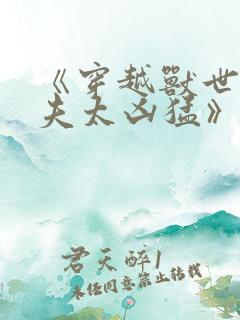 《穿越獸世
夫太凶猛》
君天醉1
未经同意禁止转载